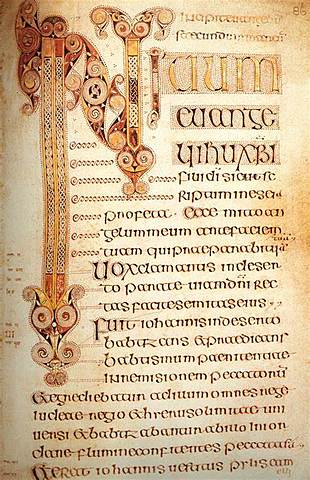 secundum
INITIUM
euange
lii ihu xpi
fili di sicut sc
riptum in esei
profeta ecce mitto an
gelum meum ante faciem
tuam qui praeparabit uia
tuam
Uox clamantis in deser
to parate uiam dni rec
tas facite semitas eius
Fuit iohannis in deserto
babtizans et praedicans
babtismum paenitentiae
in remisionem peccatorum
Et egrediebatur ad illum omnes
iudeae regio et hierusolimitae uni
uersi et babtizabantur ab illo in ior
dane flumine confitentes peccata sua
Et erat iohannis uestitus pylis cam
eli
86